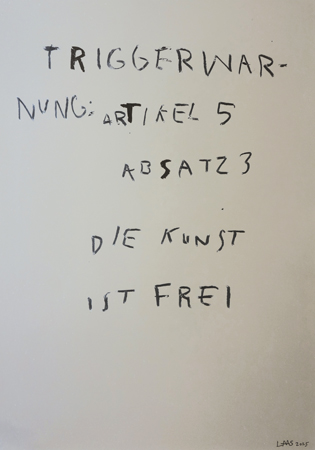 TRIGGERWAR-
NUNG: ARTIKEL 5
ABSATZ 3
DIE KUNST
IST FREI